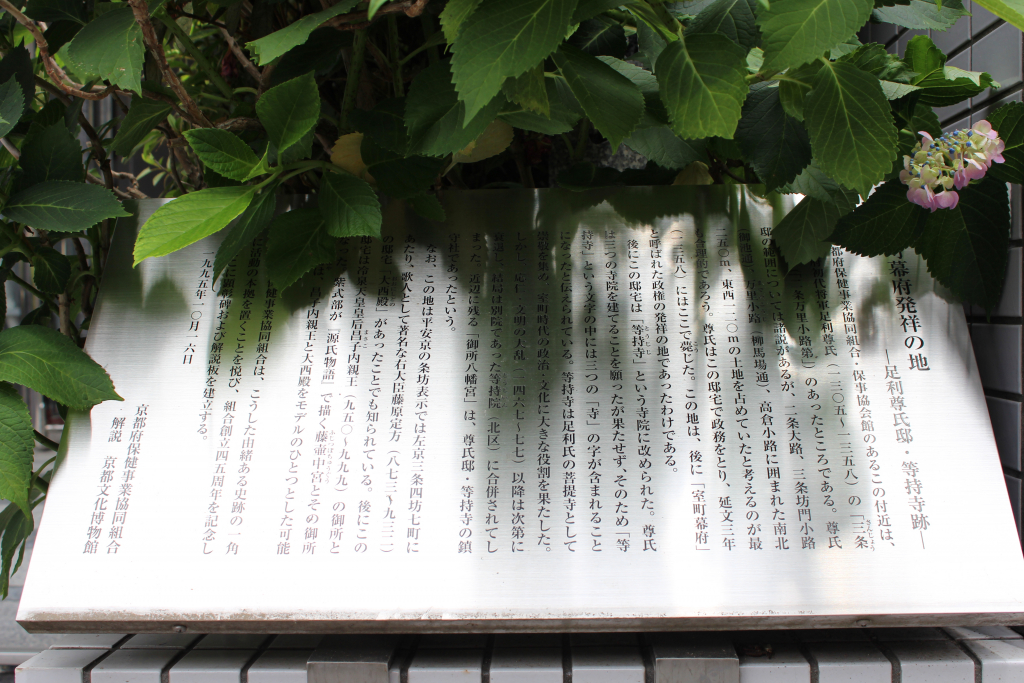 幕府発祥の地
―足利尊氏邸・等持寺跡―
都府保健事業協同組合・保事協会館のあるこの付近は、
代将軍足利尊氏(一三〇五〜一三五八)の「三条
さんじょう
万里小路第」のあったところである。尊氏
邸の範囲については諸説があるが、二条大路、三条坊門小路
万里小路(柳馬場通)、高倉小路に囲まれた南北
二五〇m、東西一二〇mの土地を占めていたと考えるのが最
合理的であろう。尊氏はこの邸宅で政務をとり、延文三年
(一三五八)にはここで薨じた。この地は、後に「室町幕府」
と呼ばれた政権の発祥の地であったわけである。
後にこの邸宅は「等持寺」という寺院に改められた。尊氏
とうじじ
は三つの寺院を建てることを願ったが果たせず、そのため「等
持寺」という文字の中には三つの「寺」の字が含まれること
になったと伝えられている。等持寺は足利氏の菩提寺として
崇敬を集め、室町時代の政治・文化に大きな役割を果たした。
しかし、応仁・文明の大乱(一四六七〜七七)以降は次第に
衰退し、結局は別院であった等持院(北区)に合併されてし
まった。近辺に残る「御所八幡宮」は、尊氏邸・等持寺の鎮
守社であったという。
なお、この地は平安京の条坊表示では左京三条四坊七町に
あたり、歌人として著名な右大臣藤原定方(八七三〜九三二)
の邸宅「大西殿」があったことでも知られている。後にこの
邸は冷泉天皇皇后昌子内親王(九五〇〜九九九)の御所と
まさこ
なった。紫式部が『源氏物語』で描く藤壷中宮とその御所
昌子内親王と大西殿をモデルのひとつとした可能
健事業協同組合は、こうした由緒ある史跡の一角
に活動の本拠を置くことを悦び、組合創立四五周年を記念し
に顕彰碑および解説板を建立する。
一九九五年一〇月一六日
京都府保健事業協同組合
解説 京都文化博物館